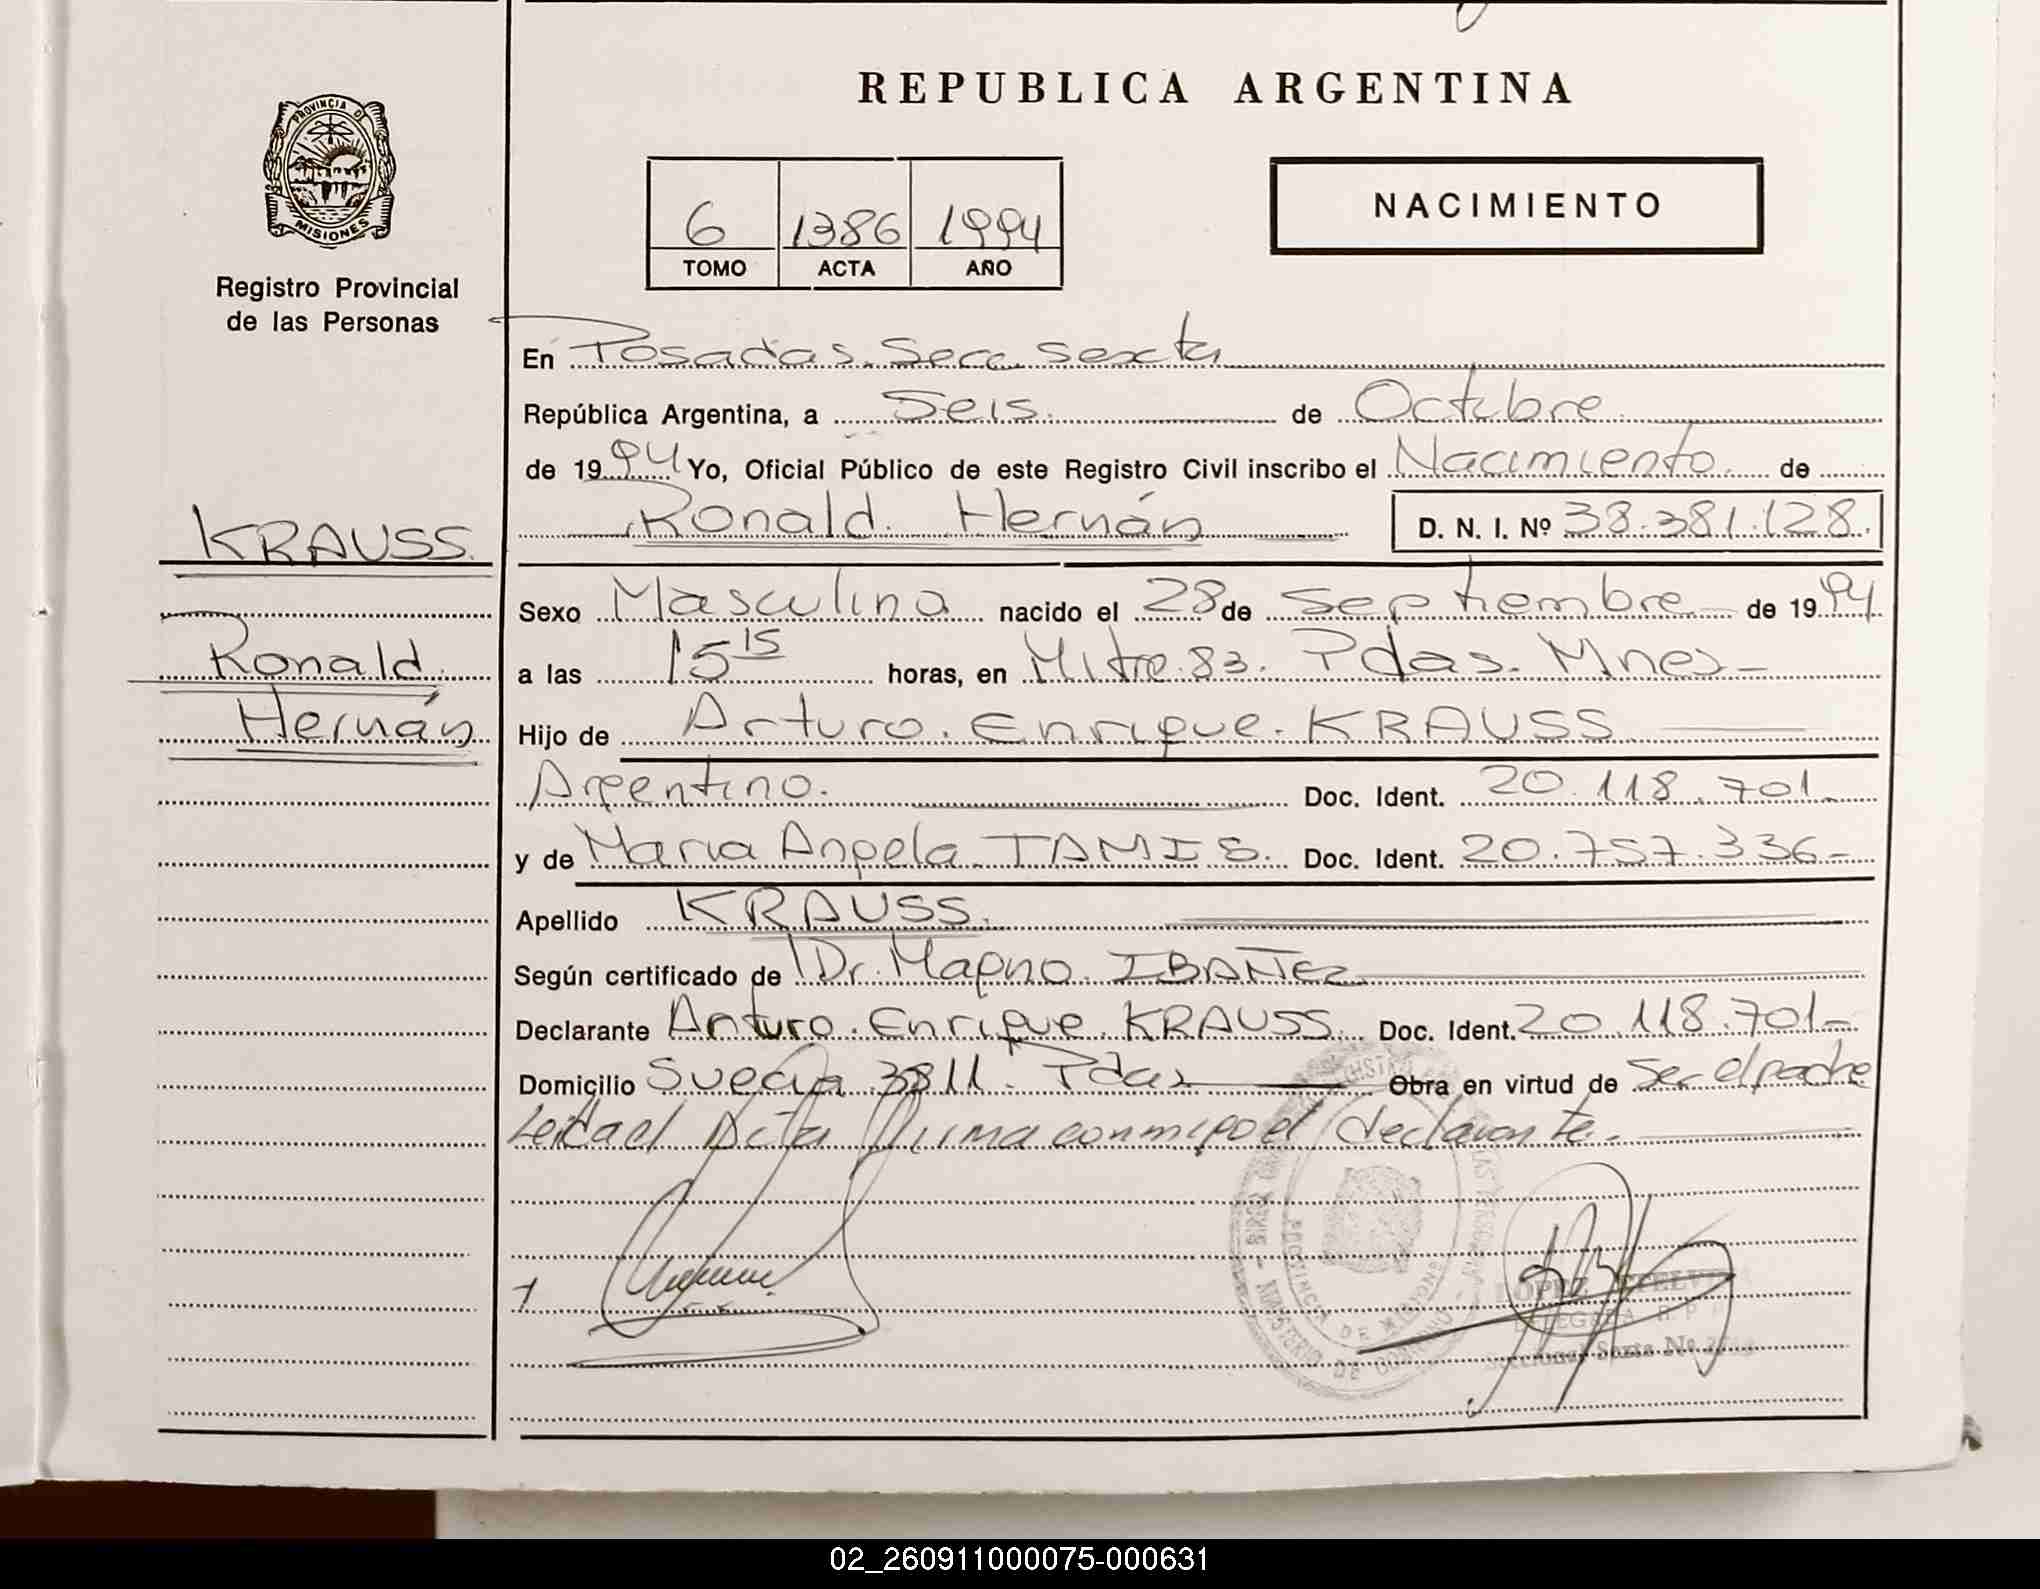 REPUBLICA ARGENTINA
PROVINCIA DE MISIONES
Registro Provincial
de las Personas
6 1386 1994
TOMO ACTA AÑO
NACIMIENTO
En Posadas. Secc. Sexta
República Argentina, a Seis. de Octubre
de 1994 Yo, Oficial Público de este Registro Civil inscribo el Nacimiento de
Ronald Hernán D. N. I. Nº 38.381.128.
KRAUSS
Ronald
Hernán
Sexo Masculino nacido el 28 de Septiembre de 1994
a las 15 15 horas, en Mitre 83. Pdas. Mnes-
Hijo de Arturo Enrique KRAUSS
Argentino. Doc. Ident. 20.118.701-
y de Maria Angela TAMIS. Doc. Ident. 20.757.336-
Apellido KRAUSS.
Según certificado de Dr. Magno IBAÑEZ
Declarante Arturo Enrique KRAUSS. Doc. Ident. 20.118.701-
Domicilio Suecia 3811. Pdas Obra en virtud de ser el padre
Leida el Acta firma conmigo el declarante.
PROVINCIA DE MISIONES
MINISTERIO DE GOBIERNO
LOPEZ
DELEGADA R. P. P.
Seccional Sexta Nº
02_260911000075-000631